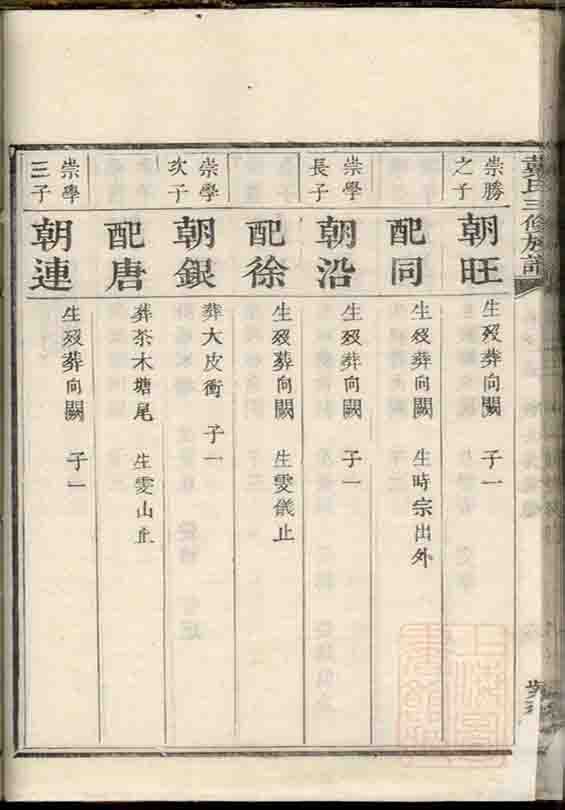 崇勝之子
朝旺
生歿葬向闕 子一
配同
生歿葬向闕 生時宗出外
崇學長子
朝沿
生歿葬向闕 子一
配徐
生歿葬向闕 生雯儀止
崇學次子
朝銀
葬大皮衝 子一
配唐
葬茶木塘尾 生雯山止
崇學三子
朝連
生歿葬向闕 子一
氏三修族譜